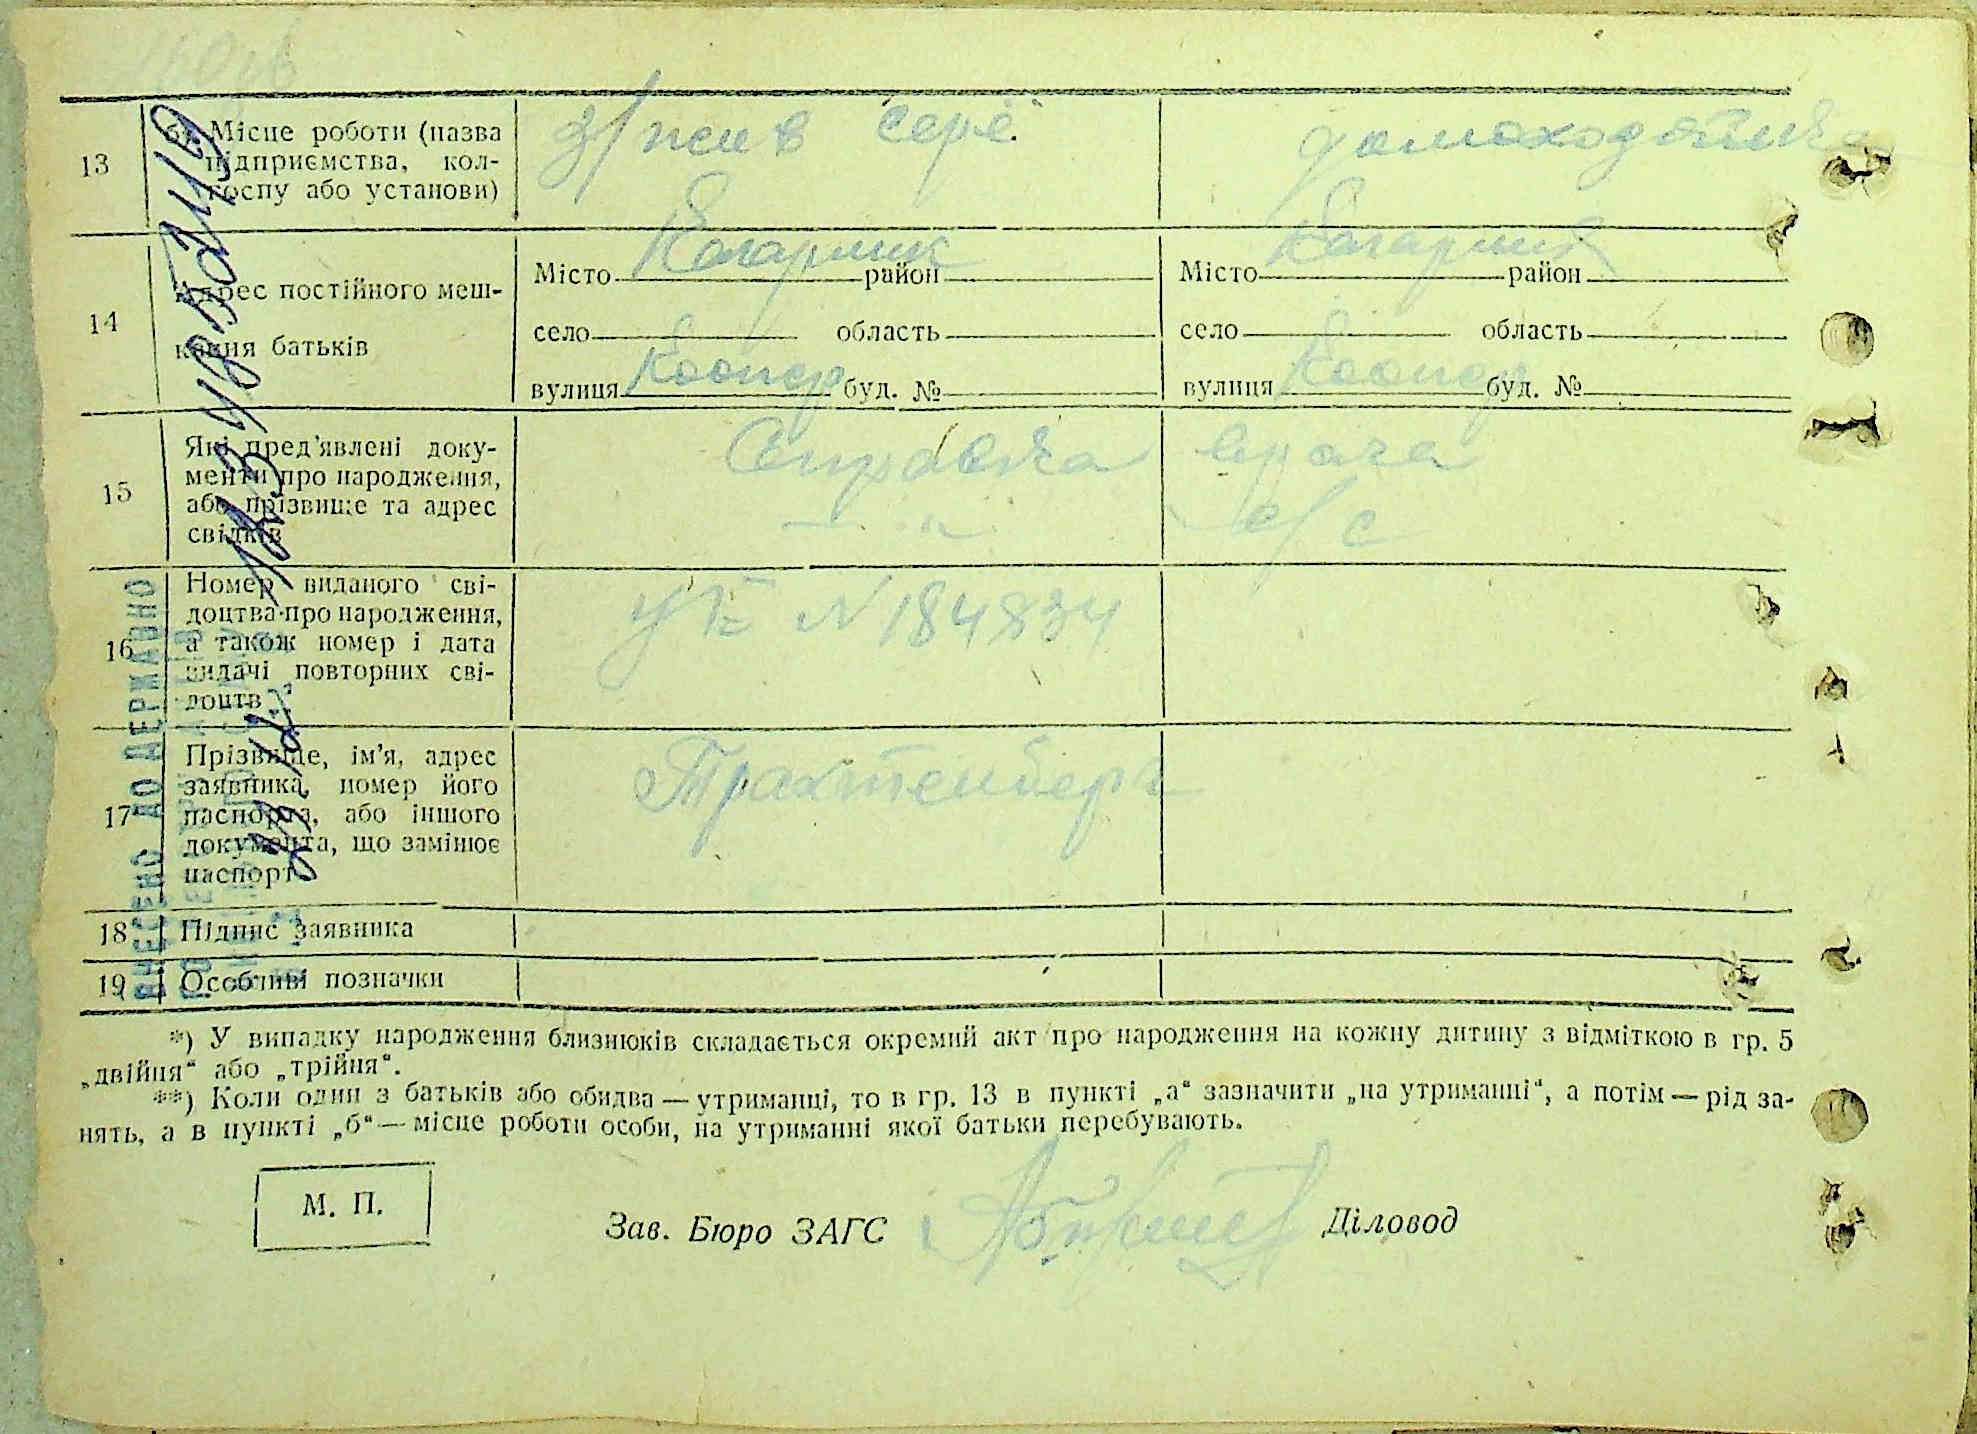 13
б) Місце роботи (назва
підприємства, кол-
госпу або установи)
домохозяйка
14
Адрес постійного меш-
кання батьків
Місто Кагарлик район
село область
вулиця Коопер буд. №
Місто Кагарлик район
село область
вулиця Коопер буд. №
15
Які пред'явлені доку-
менти про народження,
або прізвище та адрес
свідків
Справка врача
16
Номер виданого сві-
доцтва про народження,
а також номер і дата
видачі повторних сві-
доцтв
N 184834
17
Прізвище, ім'я, адрес
заявника, номер його
паспорта, або іншого
документа, що замінює
паспорт
Трахтенберг
18
Підпис заявника
19
Особливі позначки
ВНЕСЕНО ДО ДЕРЖАВНО
*) У випадку народження близнюків складається окремий акт про народження на кожну дитину з відміткою в гр. 5
„двійня“ або „трійня“.
**) Коли один з батьків або обидва — утриманці, то в гр. 13 в пункті „а“ зазначити „на утриманні“, а потім — рід за-
нять, а в пункті „б“ — місце роботи особи, на утриманні якої батьки перебувають.
М. П.
Зав. Бюро ЗАГС
Діловод